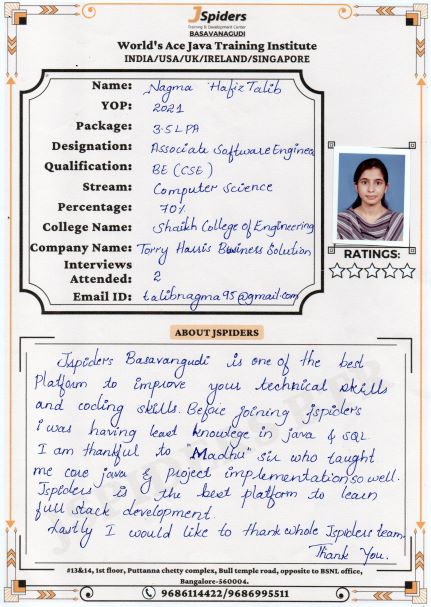 JSpiders
Training & Development Center
BASAVANAGUDI
World's Ace Java Training Institute
INDIA/USA/UK/IRELAND/SINGAPORE
Name: Nagma Hafiz Talib
YOP: 2021
Package: 3.5 LPA
Designation: Associate Software Enginea
Qualification: BE (CSE)
Stream: Computer Science
Percentage: 70%
College Name: Shaikh College of Engineering
Company Name: Torry Harris Business Solution
Interviews
Attended: 2
Email ID: talibnagma95@gmail.com
RATINGS:
ABOUT JSPIDERS
Jspiders Basavangudi is one of the best
Platform to improve your technical skills
and coding skills. Before joining jspiders
i was having least knowlege in java & SQL.
I am thankful to "Madhu" sir who taught
me core java & project implementation so well.
Jspiders is the best platform to learn
full stack development.
Lastly I would like to thank whole Jspiders team.
Thank You.
#13&14, 1st floor, Puttanna chetty complex, Bull temple road, opposite to BSNL office,
Bangalore-560004.
9686114422/9686995511